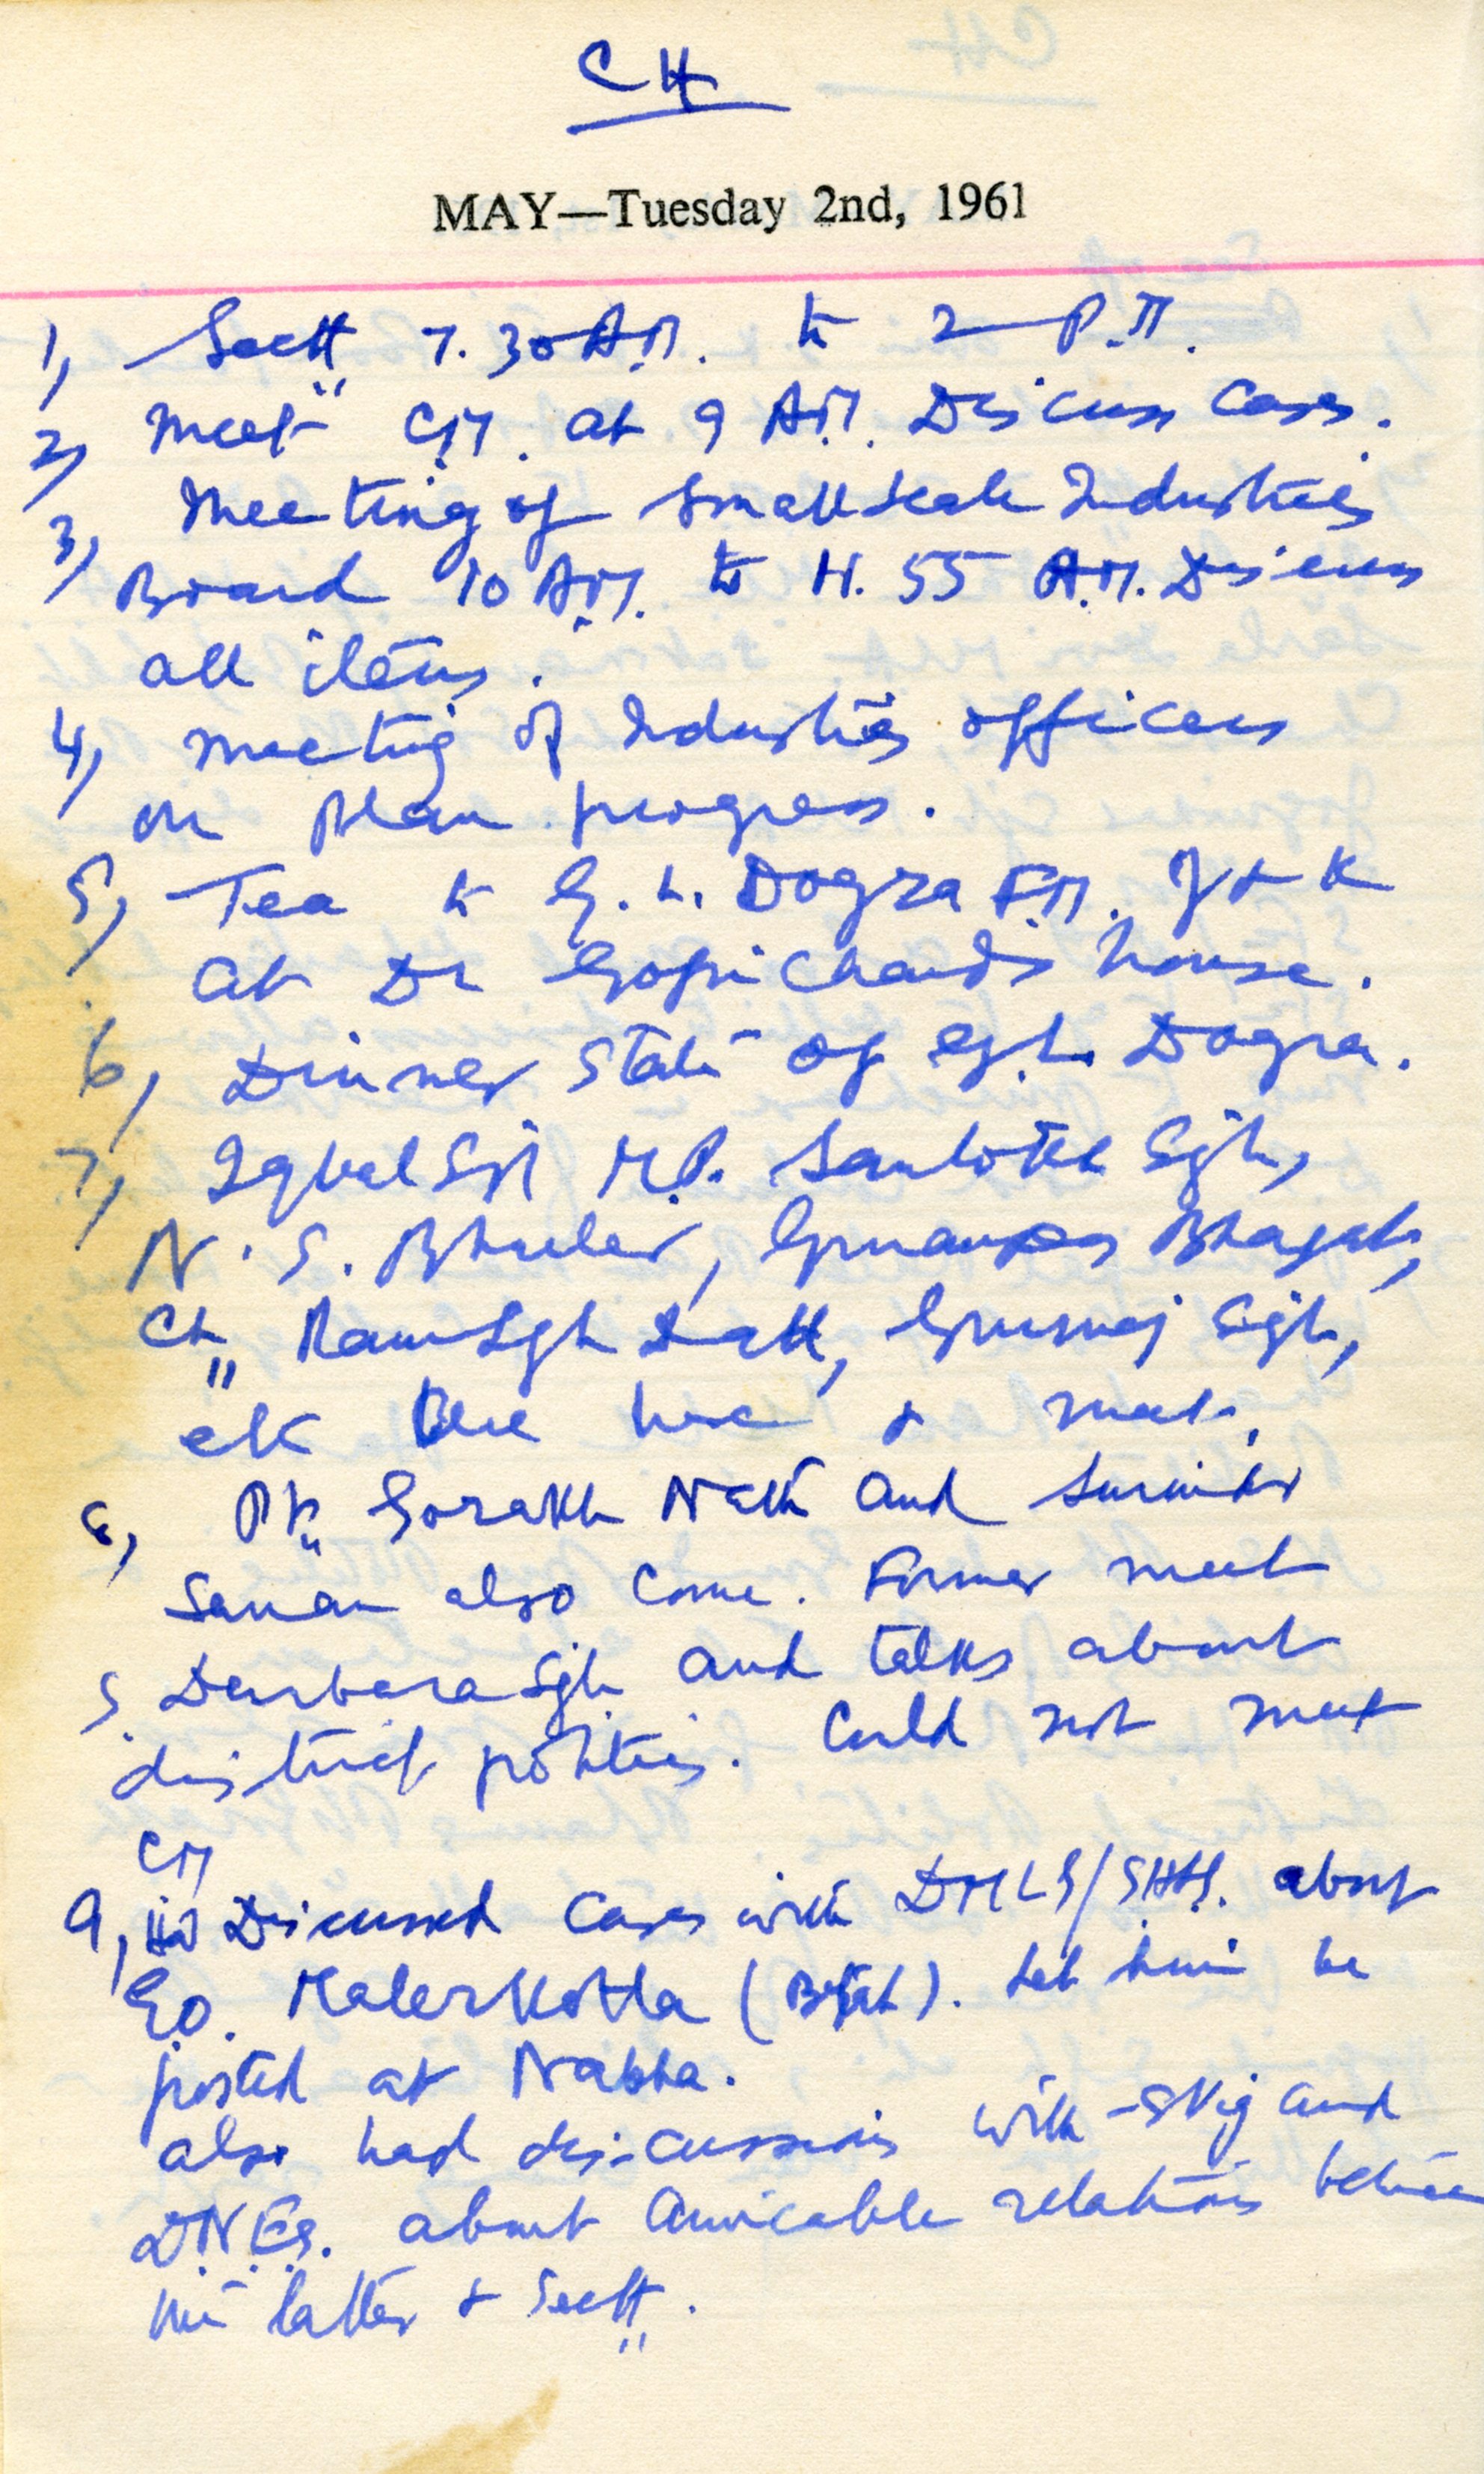 CH
MAY—Tuesday 2nd, 1961
1, Sectt 7.30 A.M. to 2 P.M.
2, Meet C.M. at 9 A.M. Discuss cases.
3, Meeting of Small Scale Industries
Board 10 A.M. to 11.55 A.M. Discuss
all items.
4, Meeting of Industries officers
on Plan progress.
5, Tea to G. L. Dogra F.M. J & K
at Dr Gopi Chand's house.
6, Dinner State of G.L. Dogra.
7, Iqbal Sgh M.P. Santokh Sgh,
N. S. Bhuller, Bhagat,
Ch Ram Sgh Datt, Gurmej Sgh,
etc are here & meet.
8, Pt. Gorakh Nath and Surinder
also come. Former meet
S. Darbara Sgh and talks about
district politics. Could not meet
CM
9, Discussed cases with DMLG/ about
E.O. Malerkotla ( ). Let him be
posted at Nabha.
also had discussions with and
about amicable relations between
the latter & Sectt.